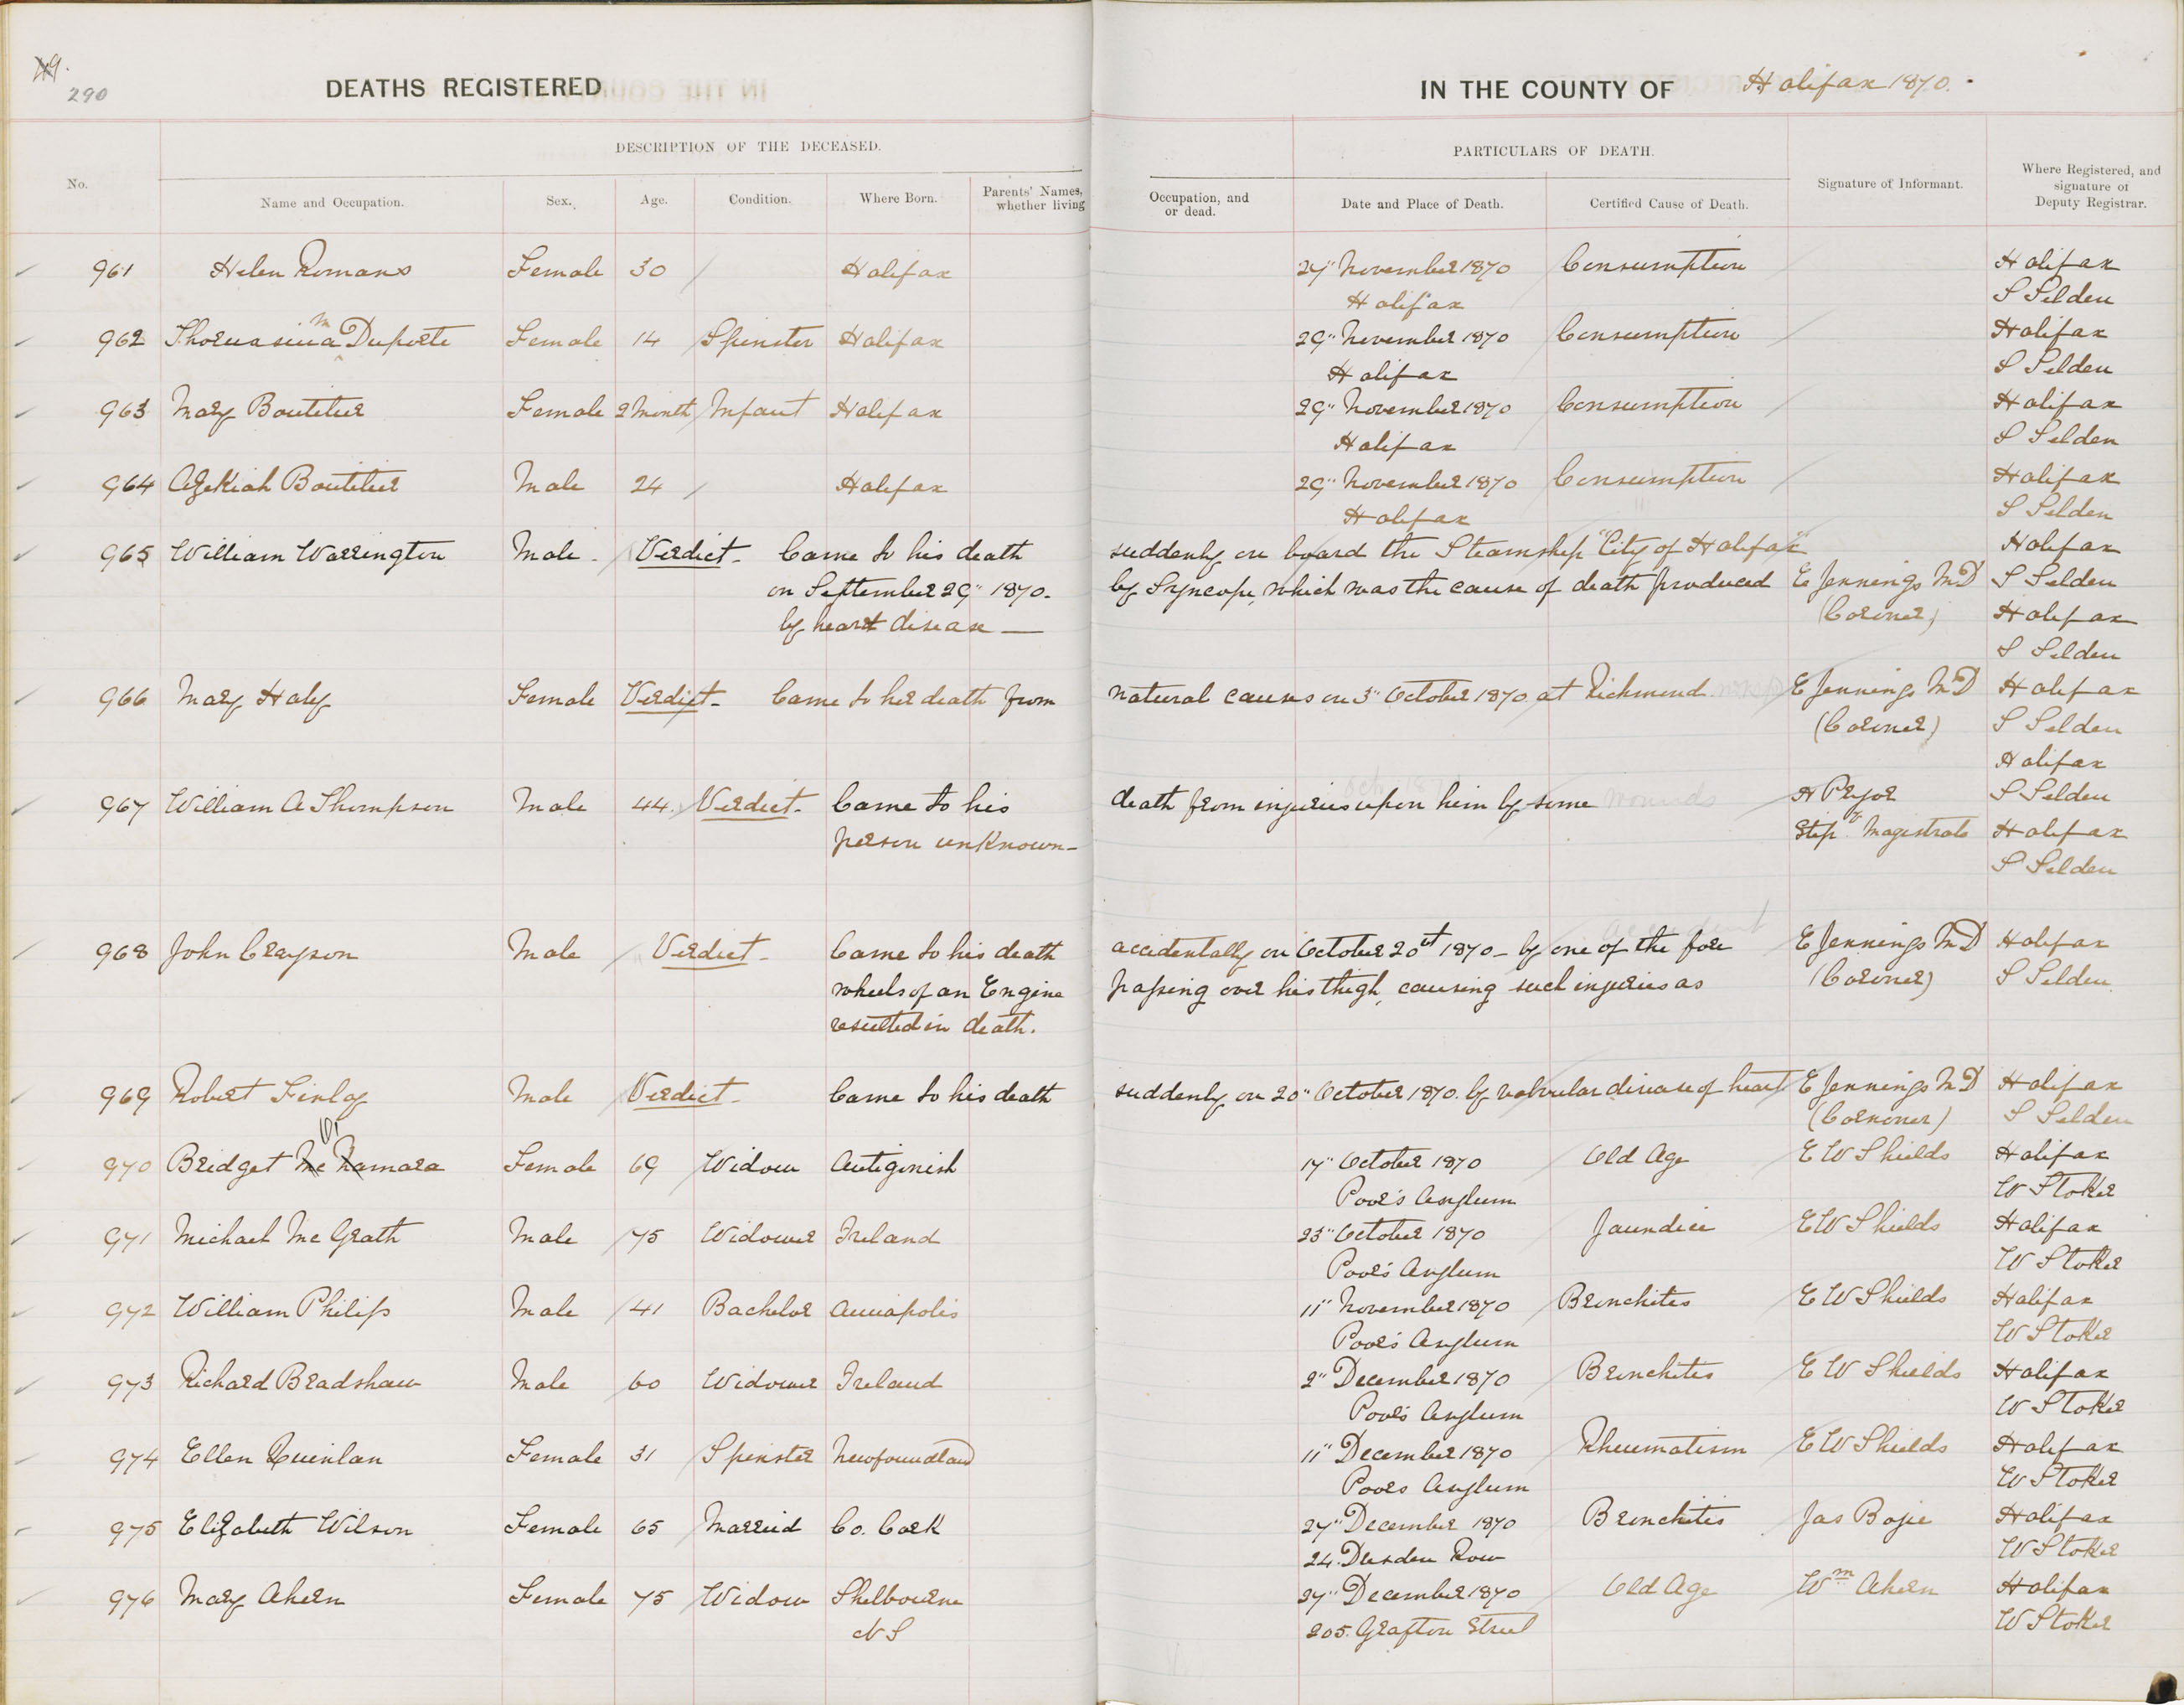 290
DEATHS REGISTERED
IN THE COUNTY OF Halifax 1870.
DESCRIPTION OF THE DECEASED.
PARTICULARS OF DEATH.
No.
Name and Occupation.
Sex.
Age.
Condition.
Where Born.
Parents' Names, whether living
Occupation, and or dead.
Date and Place of Death.
Certified Cause of Death.
Signature of Informant.
Where Registered, and signature of Deputy Registrar.
961 Helen Romans Female 30 Halifax 27" November 1870 Consumption Halifax
Halifax S Selden
962 Duporte Female 14 Spinster Halifax 29" November 1870 Consumption Halifax
Halifax S Selden
963 Mary Boutilier Female 2 Month Infant Halifax 29" November 1870 Consumption Halifax
Halifax S Selden
964 Azekiah Boutilier Male 24 Halifax 29" November 1870 Consumption Halifax
Halifax S Selden
965 William Warrington Male. Verdict - Came to his death suddenly on board the Steamship "City of Halifax" Halifax
on September 29" 1870. by Syncope, which was the cause of death produced E Jennings MD S Selden
by heart disease — (Coroner) Halifax
S Selden
966 Mary Haly Female Verdict - Came to her death from natural causes on 3" October 1870 at Richmond E Jennings MD Halifax
(Coroner) S Selden
Halifax
967 William A Thompson Male 44 Verdict - Came to his death from injuries upon him by some wounds A Pryor S Selden
person unknown - Stip y Magistrate Halifax
S Selden
accident
968 John Crayson Male Verdict - Came to his death accidentally on October 20st 1870 - by one of the fore E Jennings MD Halifax
wheels of an Engine passing over his thigh, causing such injuries as (Coroner) S Selden
resulted in death.
969 Robert Finlay Male Verdict - Came to his death suddenly on 20" October 1870. by valvular disease of heart E Jennings MD Halifax
(Cornoner) S Selden
970 Bridget Mc Namara Female 69 Widow Antigonish 17" October 1870 Old Age E W Shields Halifax
Poor's Asylum W Stoker
971 Michael Mc Grath Male 75 Widower Ireland 23" October 1870 Jaundice E W Shields Halifax
Poor's Asylum W Stoker
972 William Philips Male 41 Bachelor Annapolis 11" November 1870 Bronchites E W Shields Halifax
Poor's Asylum W Stoker
973 Richard Bradshaw Male 60 Widower Ireland 2" December 1870 Bronchites E W Shields Halifax
Poor's Asylum W Stoker
974 Ellen Quinlan Female 31 Spinster Newfoundland 11" December 1870 Rheumatism E W Shields Halifax
Poors Asylum W Stoker
975 Elizabeth Wilson Female 65 Married Co. Cork 27" December 1870 Bronchitis Jas Halifax
24. Dresden Row W Stoker
976 Mary Ahern Female 75 Widow Shelbourne 27" December 1870 Old Age Wm Ahern Halifax
N S 205. Grafton Street W Stoker